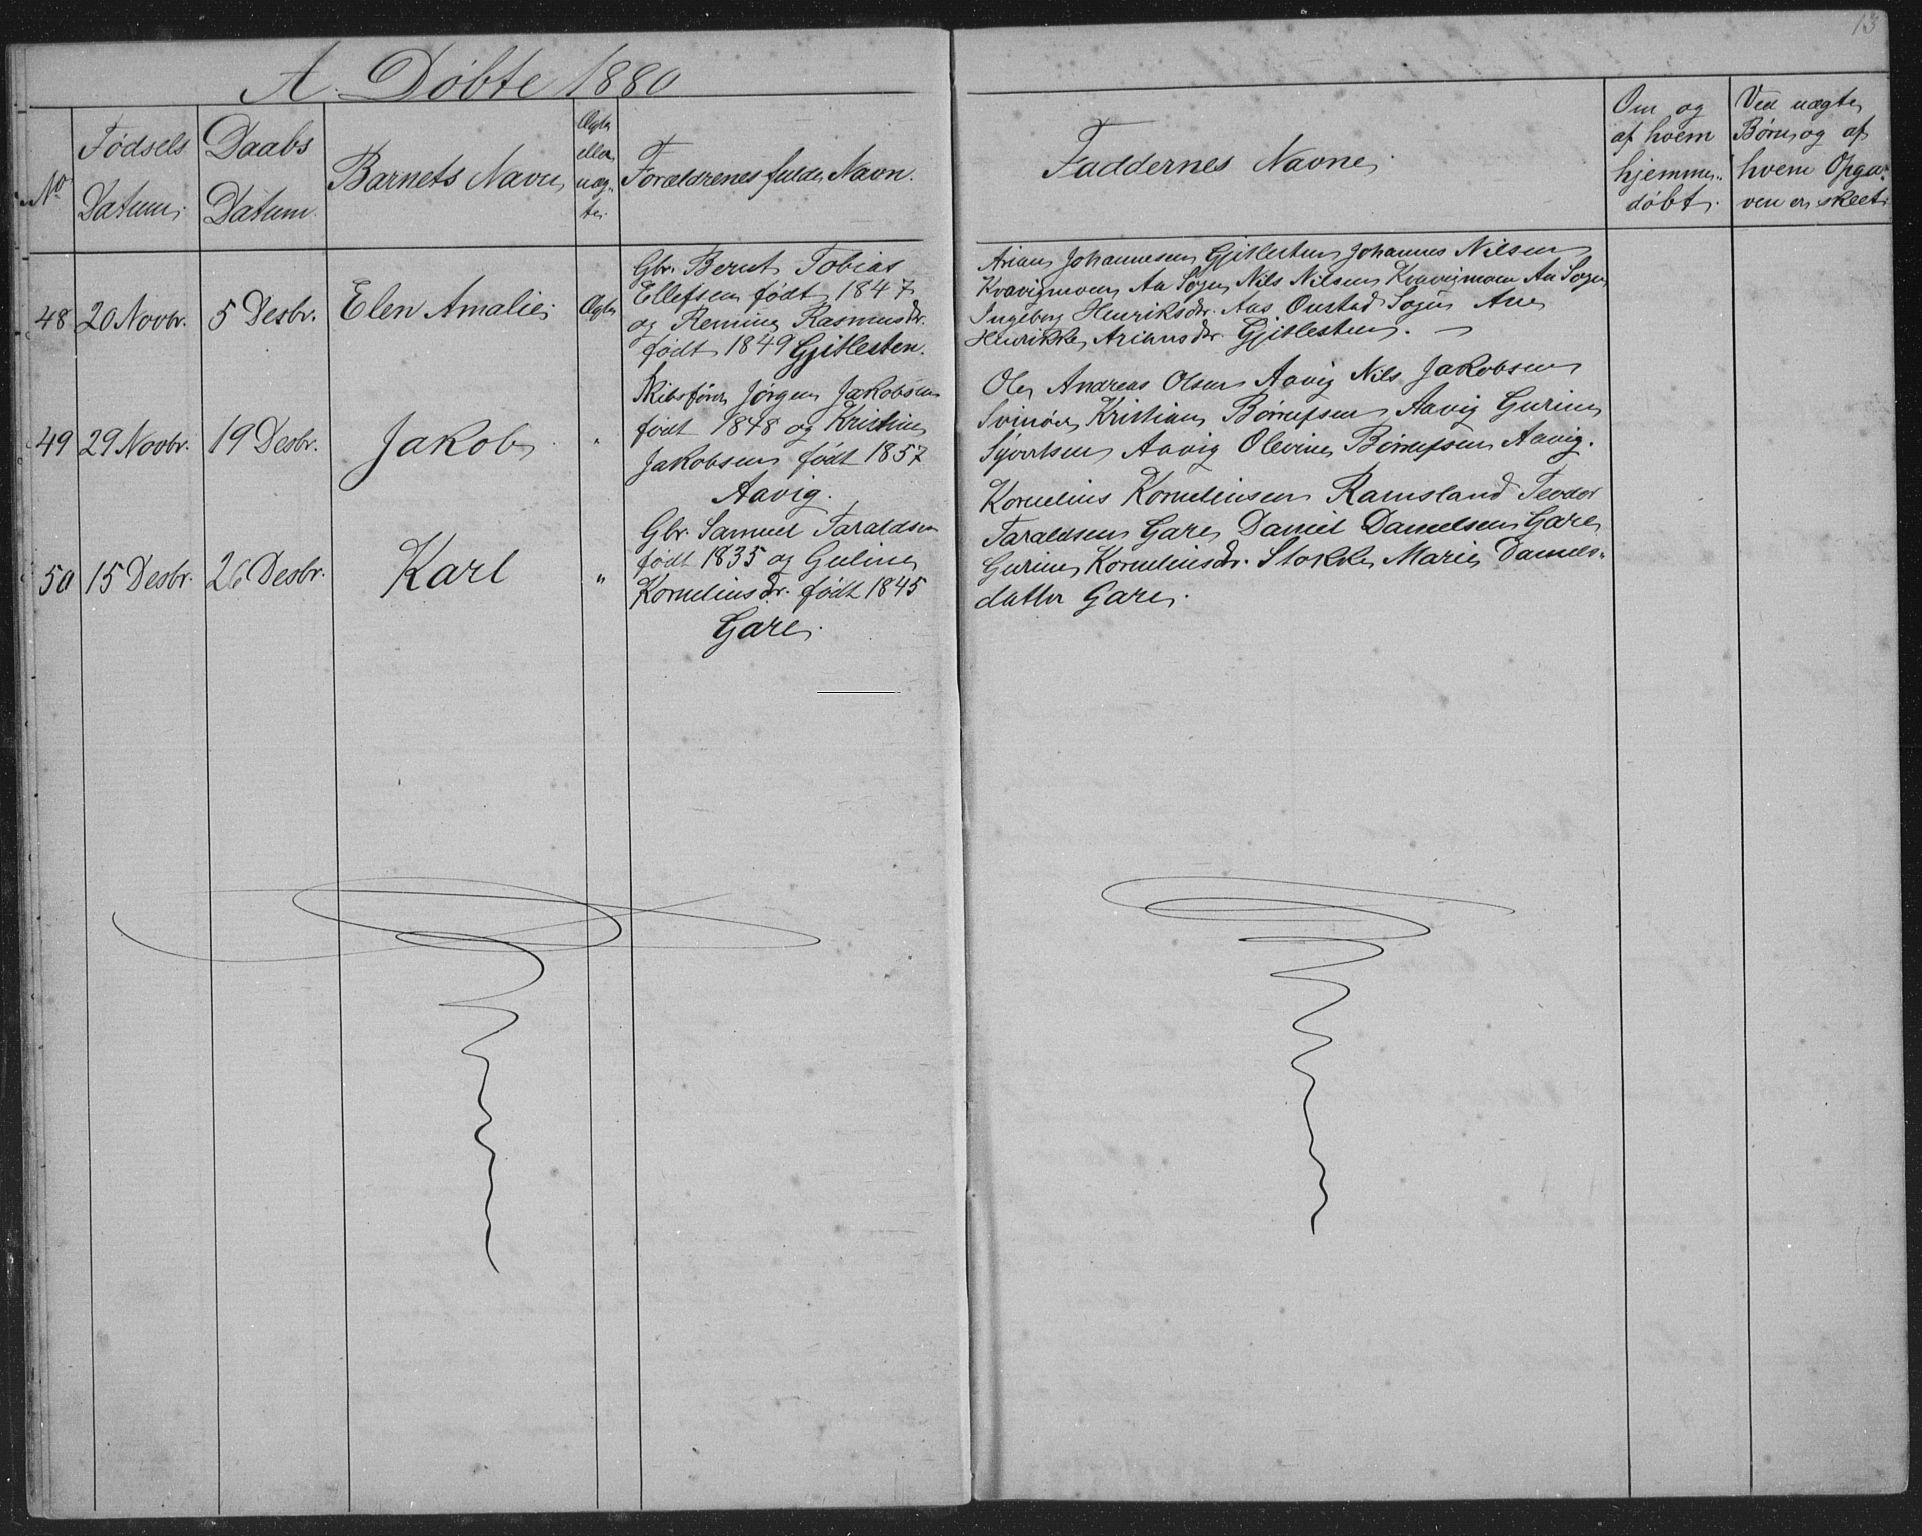 13
A. Døbte 1880
No
Fødsels Datum.
Daabs Datum.
Barnets Navn
Ægte eller uæg- te.
Forældrenes fulde Navn.
Faddernes Navne.
Om og af hvem hjemme- døbt.
Ved uægte Børn, og af hvem Opga- ven er skeet.
48 20 Novbr. 5 Desbr. Elen Amalie. Ægte
Gbr. Bernt Tobias
Ellefsen født 1847
og Remine Rasmusdr.
født 1849 Gjitlesten.
Arian Johannesen Gjitlesten Johannes Nilsen
Kvavigmoen Aa Sogn Nils Nilsen Kvavigmoen Aa Sogn
Ingeborg Henriksdr. Aas Oustad Sogn Ane
Henrikke Ariansdr. Gjitlesten. —
49 29 Novbr. 19 Desbr. Jakob "
Skibsfører Jørgen Jakobsen
født 1848 og Kristine
Jakobsen født 1857
Aavig.
Ole Andreas Olsen Aavig Nils Jakobsen
Svinør Kristian Børrufsen Aavig Gurine
Syvertsen Aavig Olevine Børrufsen Aavig.
50 15 Desbr. 26 Desbr. Karl "
Gbr. Samuel Taraldsen
født 1835 og Guline
Korneliusdr. født 1845
Gare.
Kornelius Korneliusen Ramsland Teodor
Taraldsen Gare Daniel Danielsen Gare
Gurine Korneliusdr. Stokke Marie Daniels-
datter Gare.